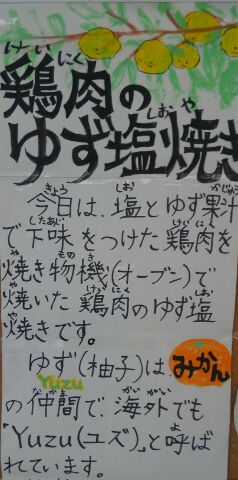 けいにく
鶏肉の
しおや
ゆず塩焼き
きょう しお かじゅう
今日は、塩とゆず果汁
したあじ けいにく
で下味をつけた鶏肉を
や もの き
焼き物機(オーブン)で
や けいにく しお
焼いた鶏肉のゆず塩
や
焼きです。
ゆず(柚子)は、みかん
Yuzu
なかま かいがい
の仲間で、海外でも
よ
「Yuzu(ユズ)」と呼ば
れています。